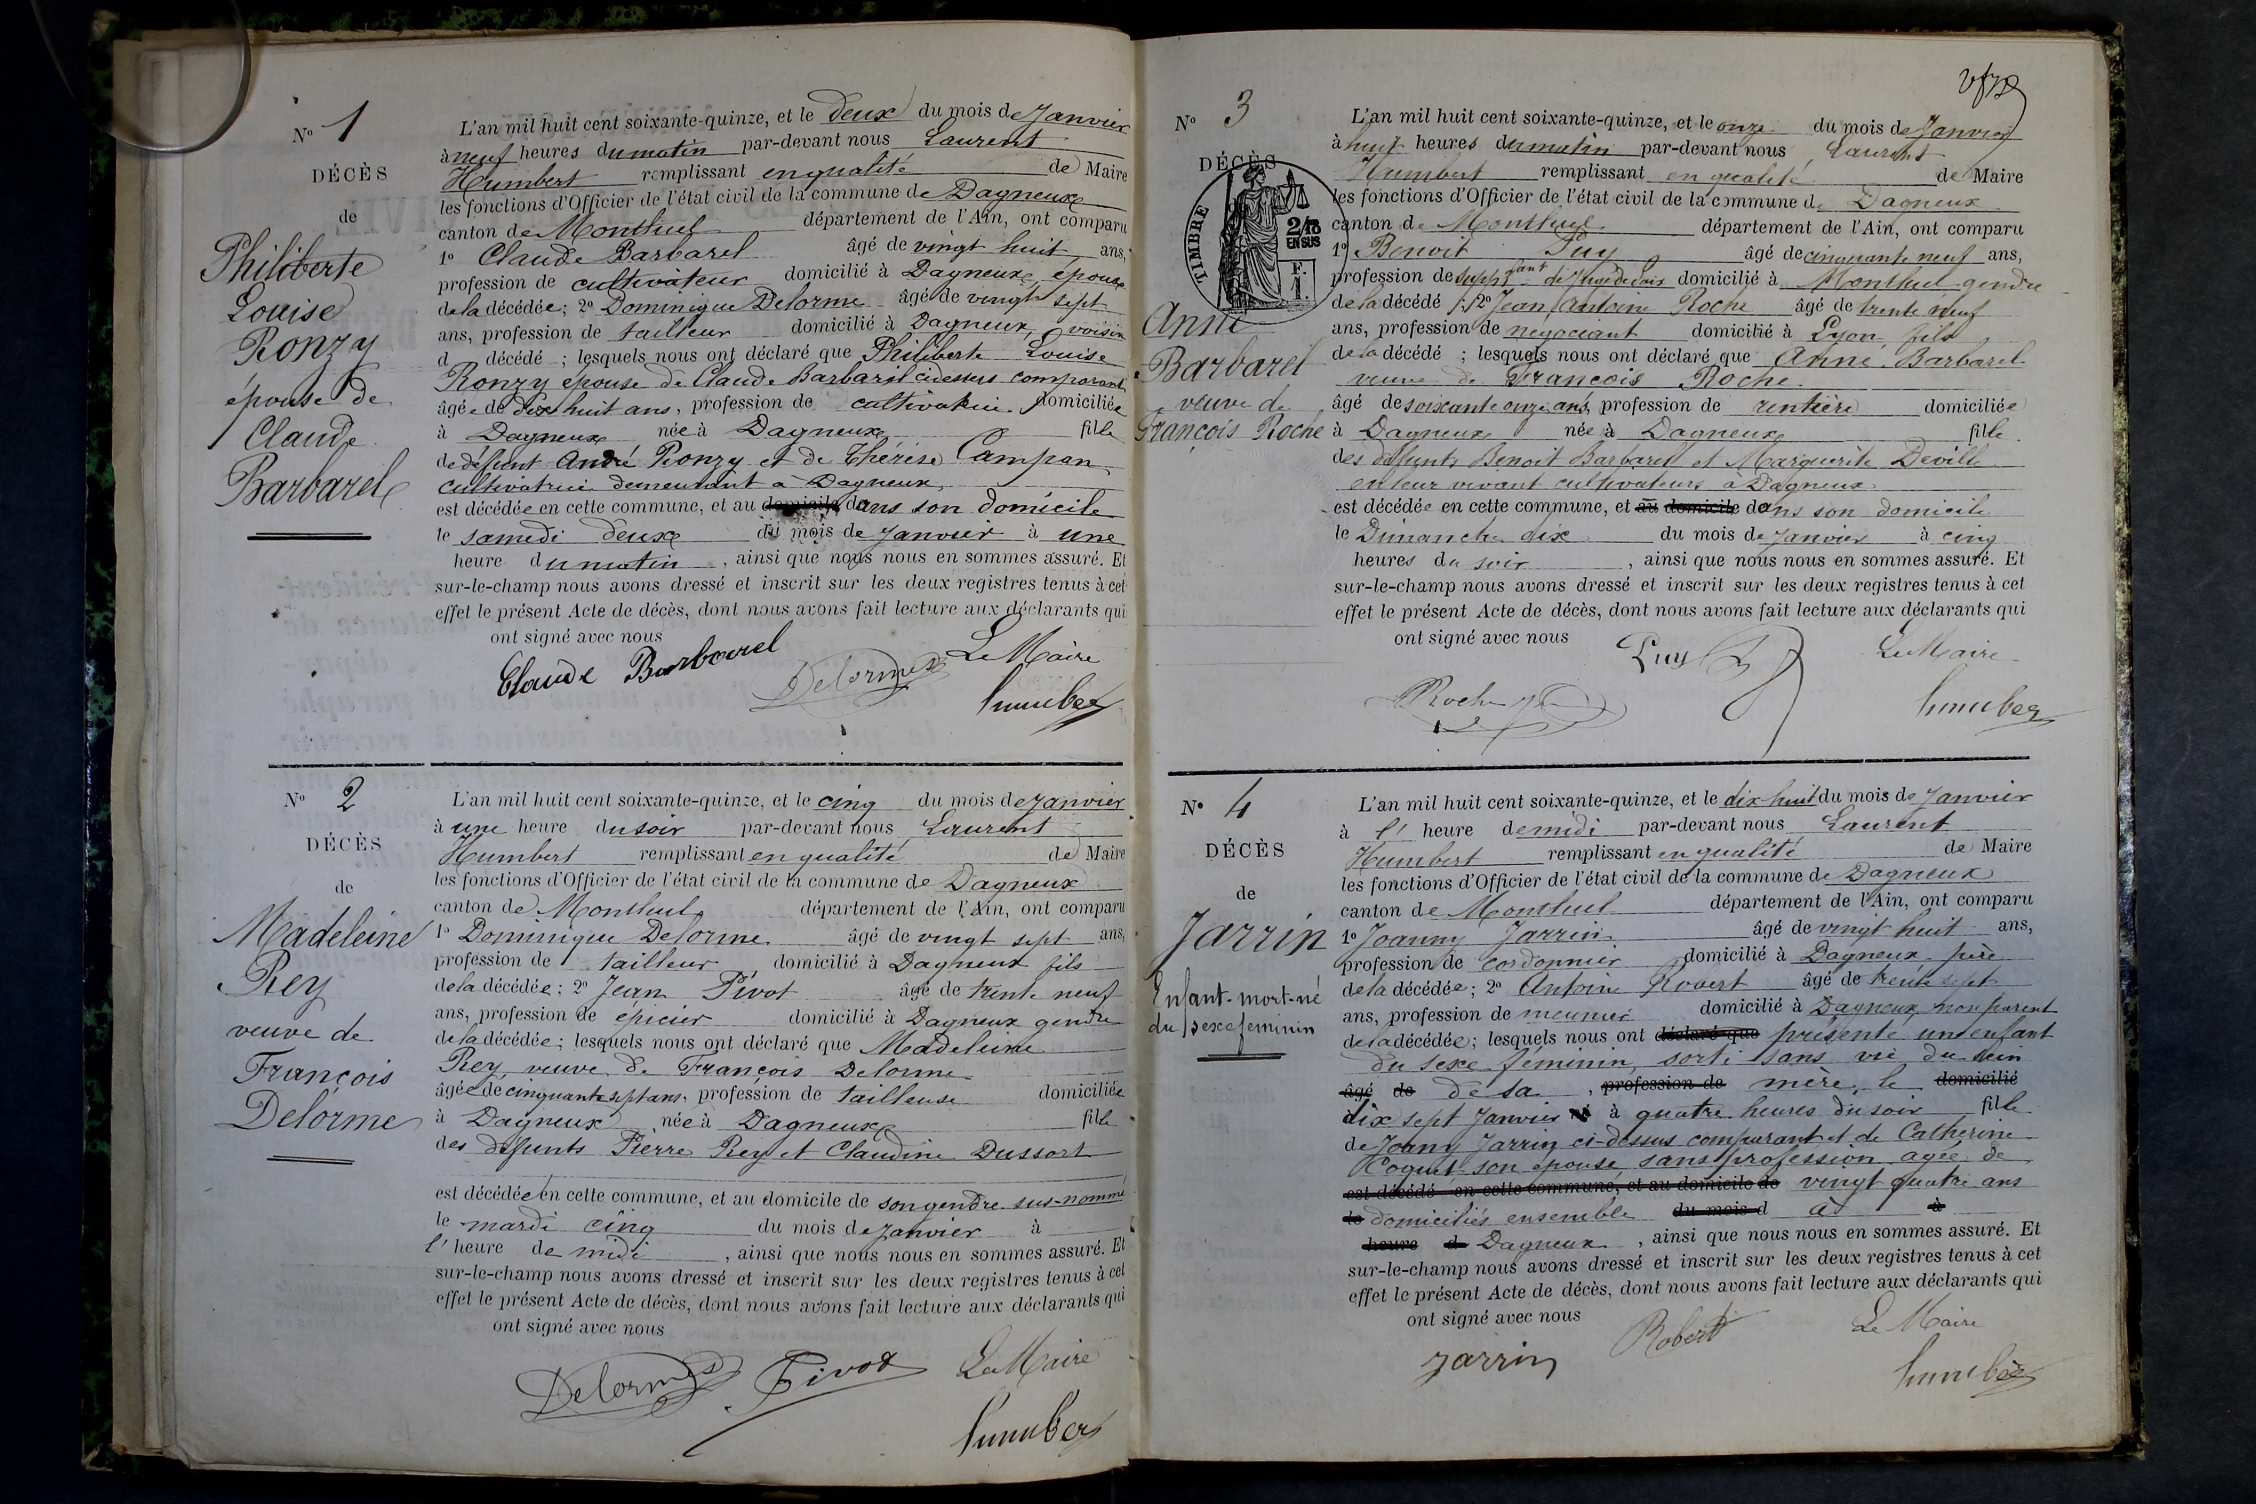 N° 1
DÉCÈS
de
Philiberte
Louise
Ronzy
épouse de
Claude
Barbarel
L'an mil huit cent soixante-quinze, et le deux du mois de Janvier
à neuf heures du matin par-devant nous Laurent
Humbert remplissant en qualité de Maire
les fonctions d'Officier de l'état civil de la commune de Dagneux
canton de Montluel département de l'Ain, ont comparu
1° Claude Barbarel âgé de vingt huit ans,
profession de cultivateur domicilié à Dagneux, époux
de la décédée; 2° Dominique Delorme âgé de vingt sept
ans, profession de tailleur domicilié à Dagneux, voisin
d décédé ; lesquels nous ont déclaré que Philiberte Louise
Ronzy épouse de Claude Barbarel cidessus comparant
âgée de dix huit ans, profession de cultivatrice domiciliée
à Dagneux née à Dagneux fille
de défunt André Ronzy et de Thérèse Campan
cultivatrice demeurant à Dagneux
est décédée en cette commune, et au domicile dans son domicile
le samedi deux du mois de Janvier à une
heure du matin , ainsi que nous nous en sommes assuré. Et
sur-le-champ nous avons dressé et inscrit sur les deux registres tenus à cet
effet le présent Acte de décès, dont nous avons fait lecture aux déclarants qui
ont signé avec nous
Claude Barbarel Delorme Le Maire
humbert
N° 2
DÉCÈS
de
Madeleine
Rey
veuve de
François
Delorme
L'an mil huit cent soixante-quinze, et le cinq du mois de Janvier
à une heure du soir par-devant nous Laurent
Humbert remplissant en qualité de Maire
les fonctions d'Officier de l'état civil de la commune de Dagneux
canton de Montluel département de l'Ain, ont comparu
1° Dominique Delorme âgé de vingt sept ans,
profession de tailleur domicilié à Dagneux fils
de la décédée; 2° Jean Pivot âgé de trente neuf
ans, profession de épicier domicilié à Dagneux gendre
de la décédée; lesquels nous ont déclaré que Madeleine
Rey, veuve de François Delorme
âgée de cinquante sept ans, profession de tailleuse domiciliée
à Dagneux née à Dagneux fille
des défunts Pierre Rey et Claudine Dussort
est décédée en cette commune, et au domicile de son gendre sus-nommé
le mardi cinq du mois de Janvier à
l'heure de midi , ainsi que nous nous en sommes assuré. Et
sur-le-champ nous avons dressé et inscrit sur les deux registres tenus à cet
effet le présent Acte de décès, dont nous avons fait lecture aux déclarants qui
ont signé avec nous
Delorme Pivot Le Maire
humbert
N° 3
DÉCÈS
TIMBRE
2/10
EN SUS
F.
1.
Anne
Barbarel
veuve de
François Roche
L'an mil huit cent soixante-quinze, et le onze du mois de Janvier
à huit heures du matin par-devant nous Laurent
Humbert remplissant en qualité de Maire
les fonctions d'Officier de l'état civil de la commune de Dagneux
canton de Montluel département de l'Ain, ont comparu
1° Benoit Puy âgé de cinquante neuf ans,
profession de suppléant de Juge de Paix domicilié à Montluel gendre
de la décédé ; 2° Jean Antoine Roche âgé de trente neuf
ans, profession de negociant domicilié à Lyon, fils
de la décédé ; lesquels nous ont déclaré que Anne Barbarel
veuve de François Roche
âgé de soixante onze ans, profession de rentière domiciliée
à Dagneux née à Dagneux fille
des défunts Benoit Barbarel et Marguerite Deville
en leur vivant cultivateurs à Dagneux
est décédée en cette commune, et au domicile dans son domicile
le Dimanche dix du mois de Janvier à cinq
heures du soir , ainsi que nous nous en sommes assuré. Et
sur-le-champ nous avons dressé et inscrit sur les deux registres tenus à cet
effet le présent Acte de décès, dont nous avons fait lecture aux déclarants qui
ont signé avec nous
Puy Le Maire
Roche humbert
N° 4
DÉCÈS
de
Jarrin
Enfant-mort-né
du sexe féminin
L'an mil huit cent soixante-quinze, et le dix huit du mois de Janvier
à l' heure de midi par-devant nous Laurent
Humbert remplissant en qualité de Maire
les fonctions d'Officier de l'état civil de la commune de Dagneux
canton de Montluel département de l'Ain, ont comparu
1° Joanny Jarrin âgé de vingt huit ans,
profession de cordonnier domicilié à Dagneux père
de la décédée; 2° Antoine Robert âgé de trente sept
ans, profession de meunier domicilié à Dagneux, non parent
de la décédée; lesquels nous ont déclaré que présenté un enfant
du sexe féminin, sorti sans vie du sein
âgé de de sa , profession de mère, le domicilié
dix sept Janvier né à quatre heures du soir fille
de Joany Jarrin ci-dessus comparant et de Catherine
Coquet son épouse, sans profession agée de
est décédé en cette commune, et au domicile de vingt quatre ans
le domiciliés ensemble du mois d à à
heure d Dagneux , ainsi que nous nous en sommes assuré. Et
sur-le-champ nous avons dressé et inscrit sur les deux registres tenus à cet
effet le présent Acte de décès, dont nous avons fait lecture aux déclarants qui
ont signé avec nous
Jarrin Robert Le Maire
humbert